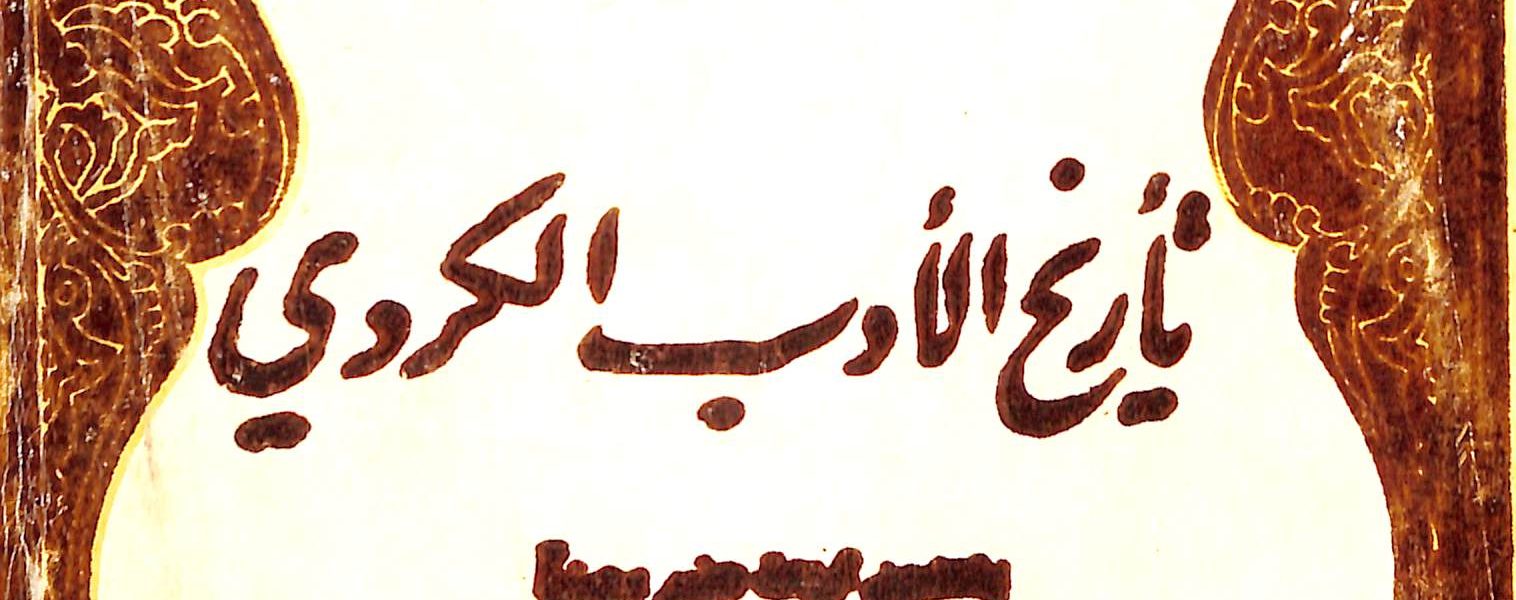 تأريخ الأدب الكردي